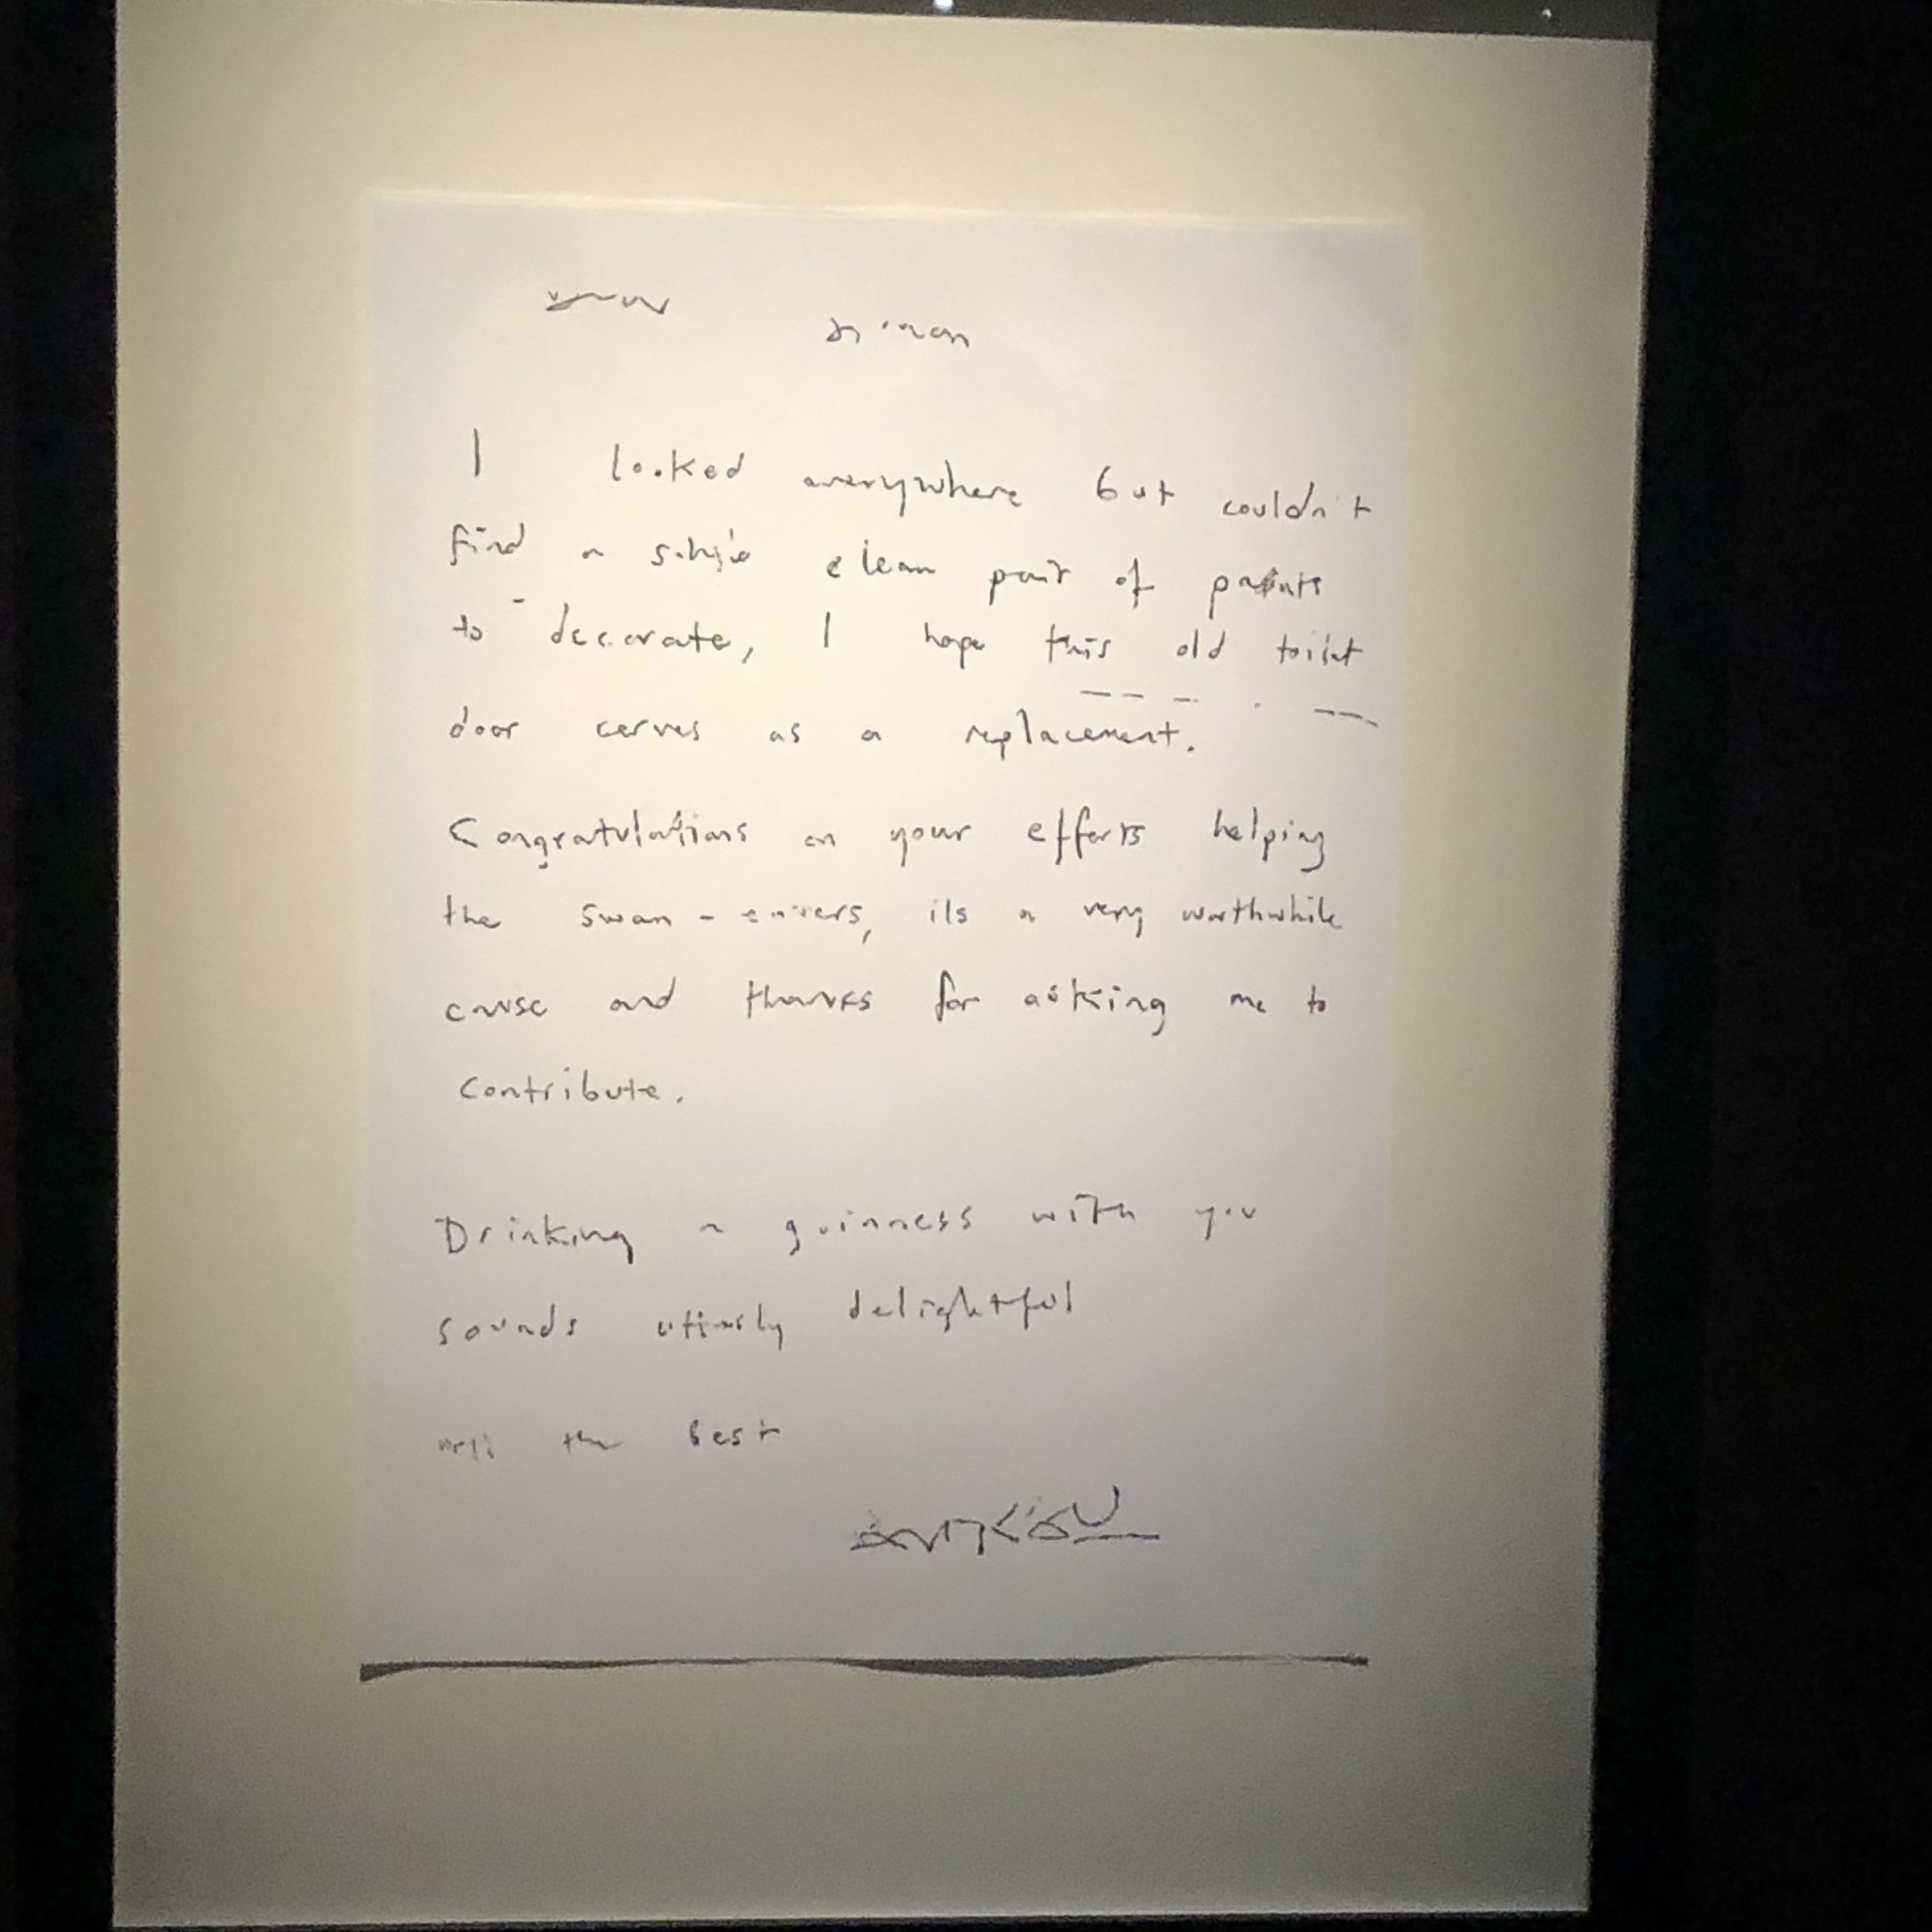 simon
I looked everywhere but couldn't
find a single clean pair of pants
to decorate, I hope this old toilet
door serves as a replacement.
Congratulations on your efforts helping
the swan-eaters, its a very worthwhile
cause and thanks for asking me to
contribute.
Drinking a guinness with you
sounds utterly delightful
all the best
BANKSY